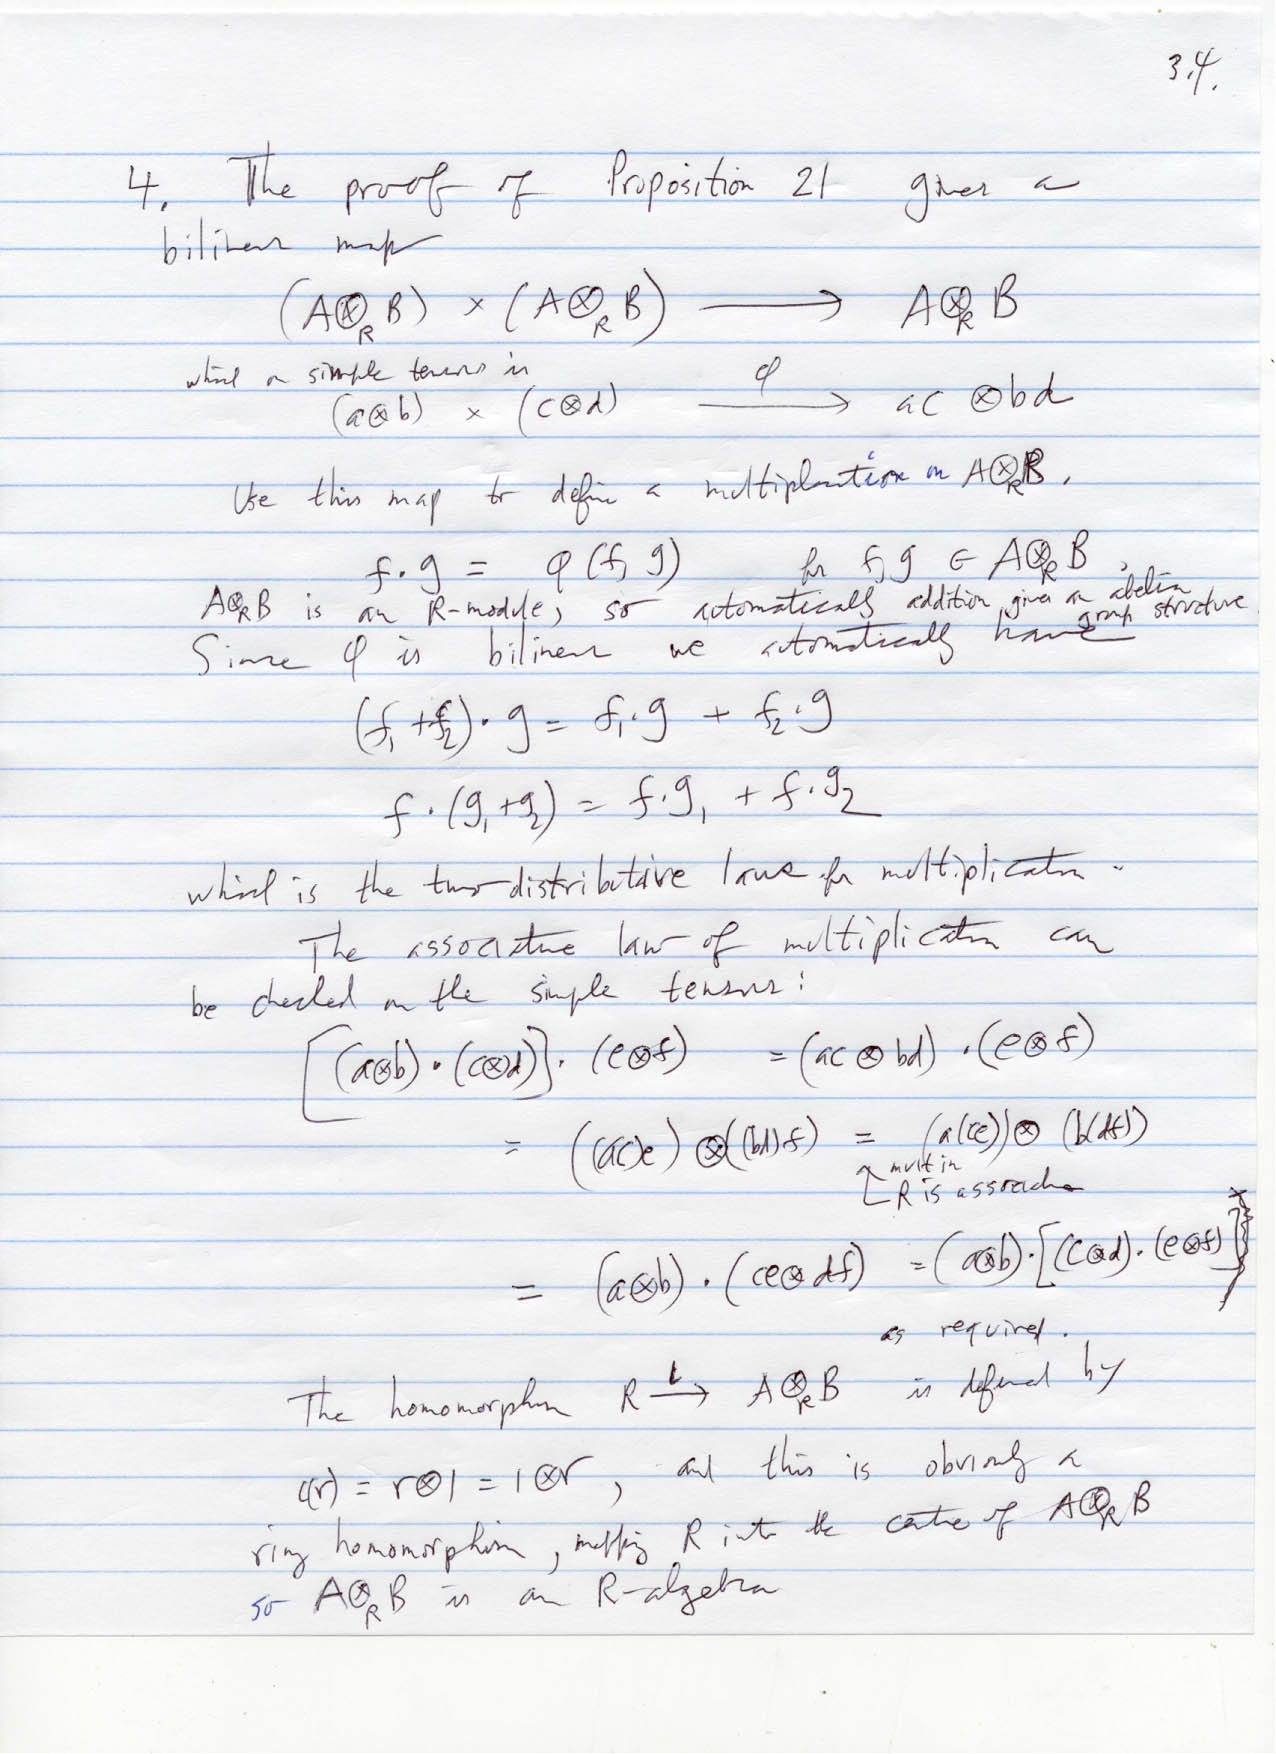 3.4.
4. The proof of Proposition 21 gives a
bilinear map
(A⊗_R B) × (A⊗_R B) ⟶ A⊗_R B
which on simple tensors is
(a⊗b) × (c⊗d) ⟶^φ ac ⊗ bd
Use this map to define a multiplication on A⊗_R B.
f·g = φ(f, g) for f, g ∈ A⊗_R B,
A⊗_R B is an R-module, so automatically addition gives an abelian group structure.
Since φ is bilinear we automatically have
(f₁ + f₂)·g = f₁·g + f₂·g
f·(g₁+g₂) = f·g₁ + f·g₂
which is the two distributive laws for multiplication.
The associative law of multiplication can
be checked on the simple tensors:
[(a⊗b)·(c⊗d)]·(e⊗f) = (ac⊗bd)·(e⊗f)
= ((ac)e) ⊗ ((bd)f) = (a(ce)) ⊗ (b(df))
mult in
R is associative
= (a⊗b)·(ce⊗df) = (a⊗b)·[(c⊗d)·(e⊗f)]
as required.
The homomorphism R ⟶^ι A⊗_R B is defined by
ι(r) = r⊗1 = 1⊗r, and this is obviously a
ring homomorphism, mapping R into the centre of A⊗_R B
so A⊗_R B is an R-algebra